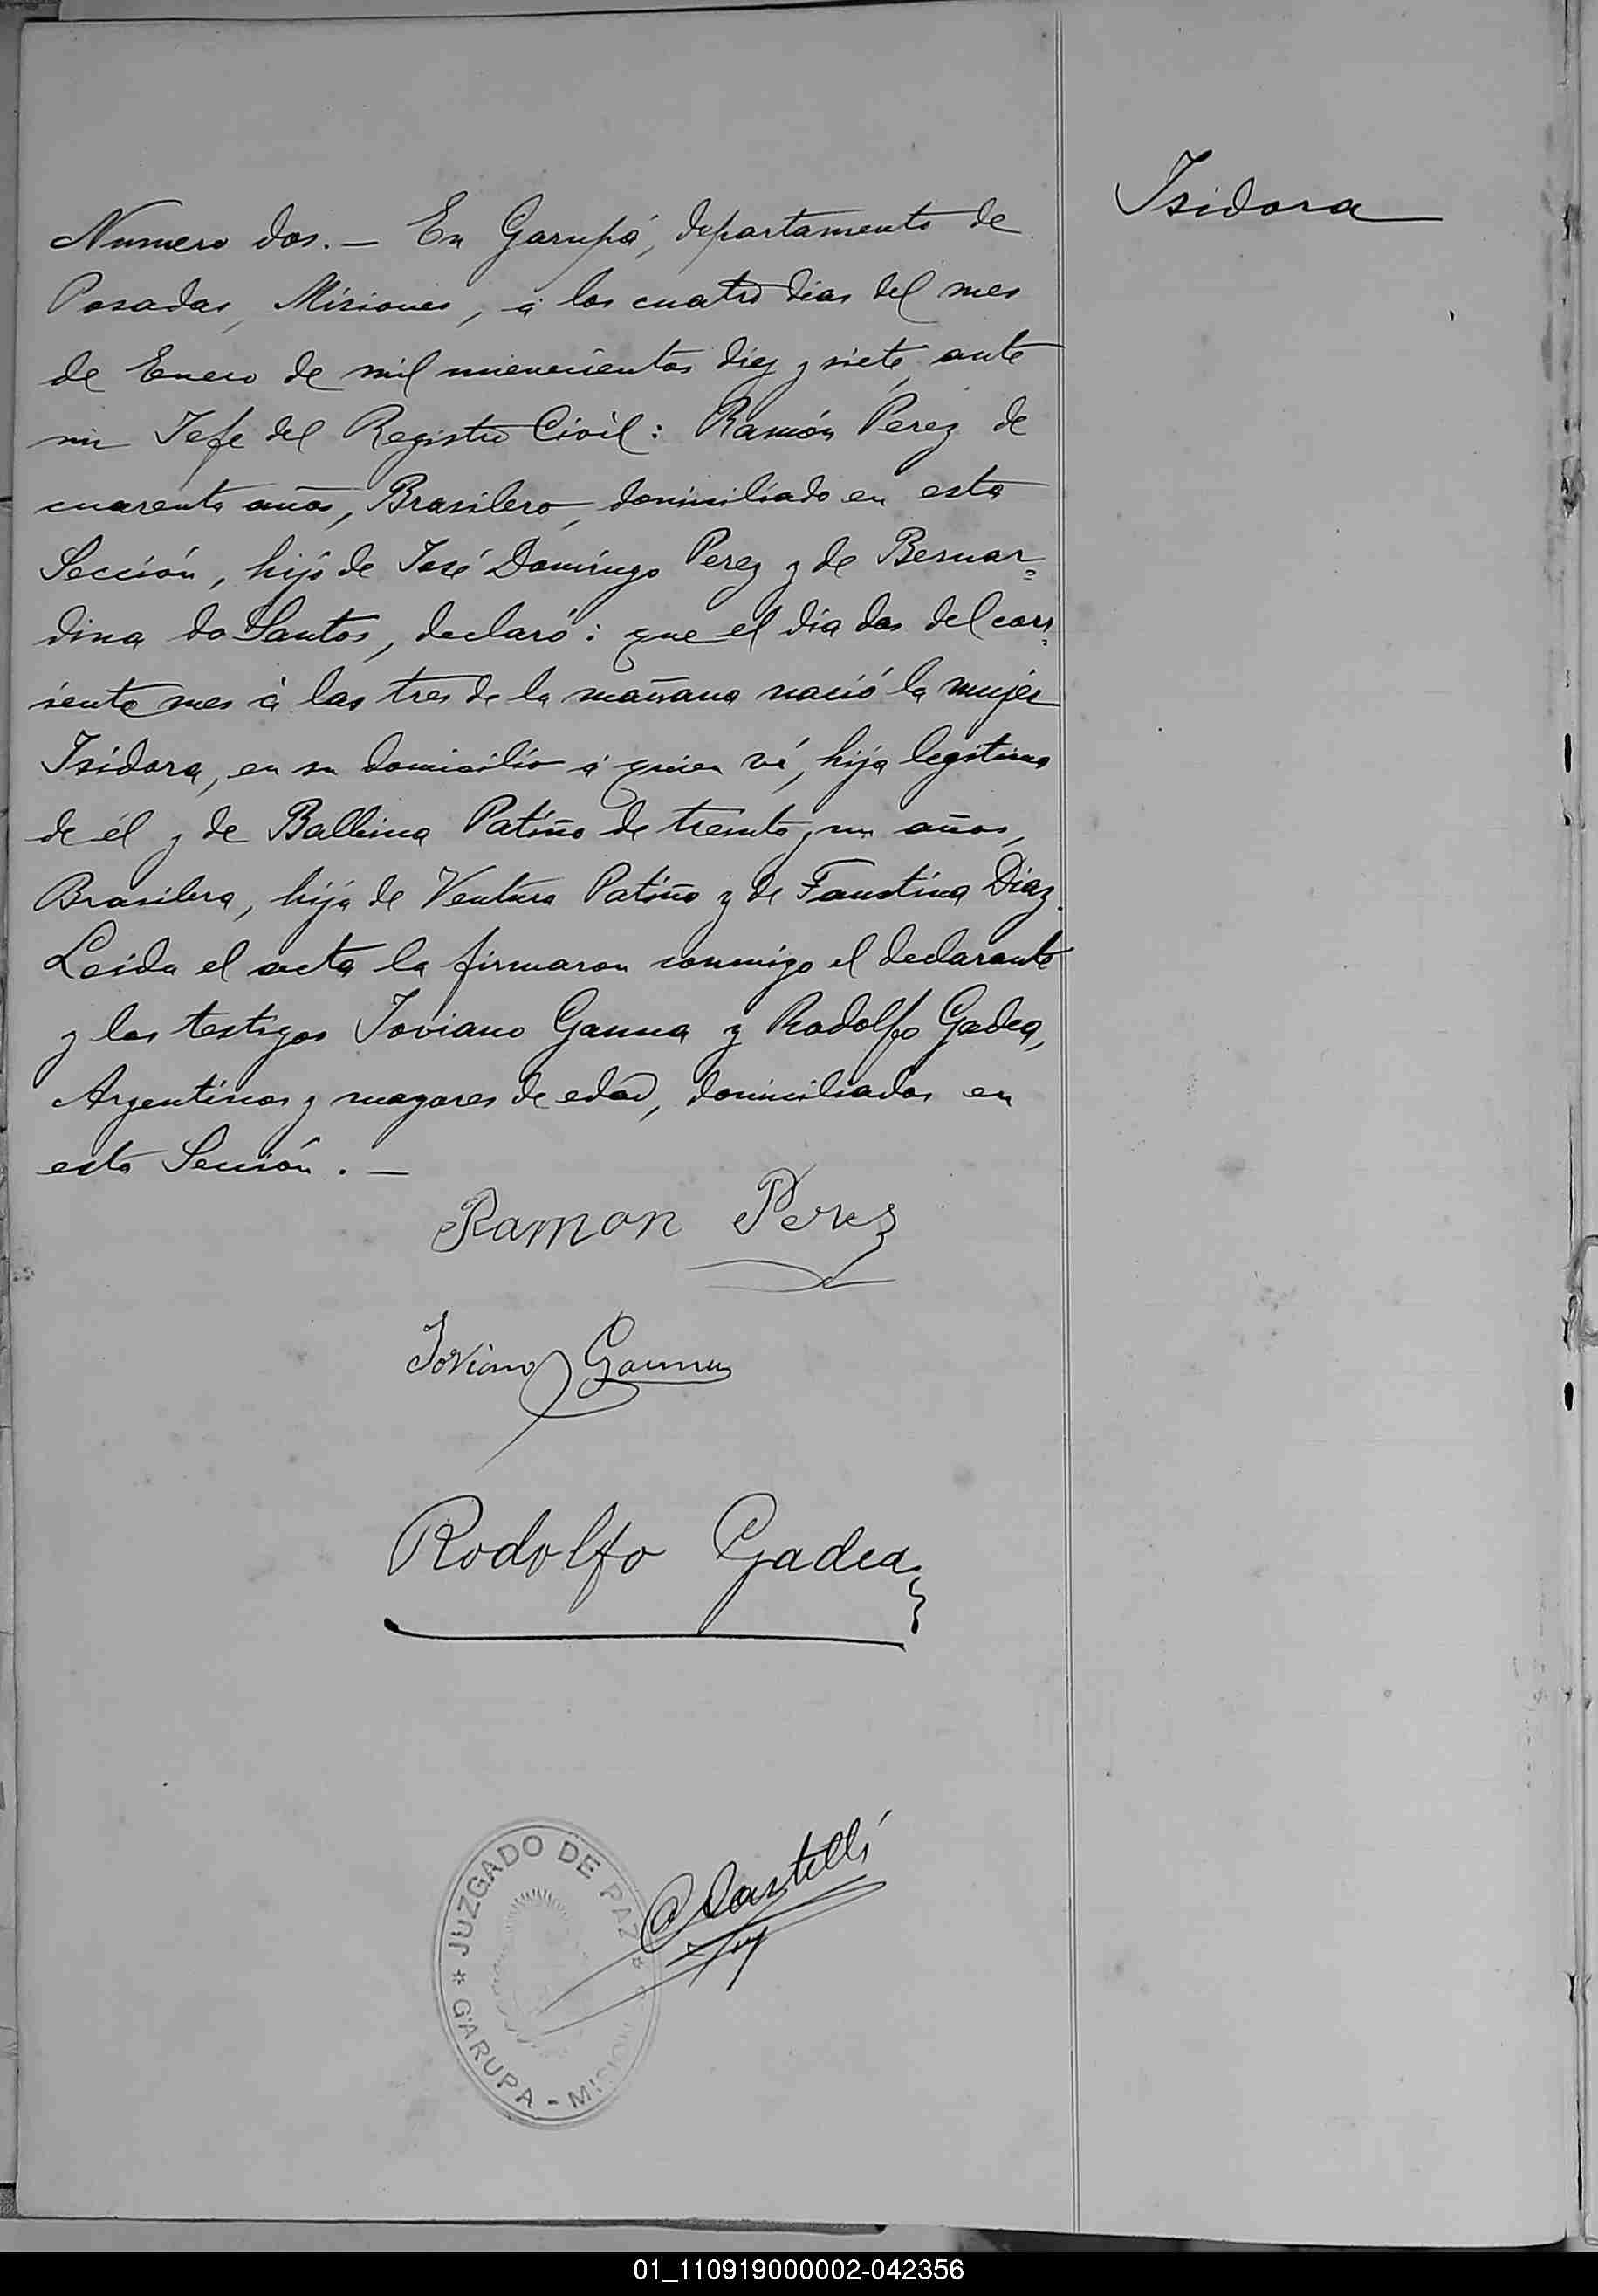 Isidora
Numero dos. — En Garupá, departamento de
Posadas, Misiones, á los cuatro dias del mes
de Enero de mil novecientos diez y siete, ante
mi Jefe del Registro Civil: Ramón Pérez de
cuarenta años, Brasilero, domiciliado en esta
Sección, hijo de José Domingo Perez y de Bernar=
dina do Santos, declaró: que el dia dos del corr=
iente mes á las tres de la mañana nació la mujer
Isidora, en su domicilio á quien vé, hija legitima
de él y de Balbina Patiño de treinta y un años,
Brasilera, hija de Ventura Patiño y de Faustina Diaz.
Leida el acta la firmaron conmigo el declarante
y los testigos Joviano Gauna y Rodolfo Gadea,
Argentinos y mayores de edad, domiciliados en
esta Sección. —
Ramon Perez
Joviano Gauna
Rodolfo Gadea
Castelli
JUZGADO DE PAZ
GARUPA - MISIONES
01_110919000002-042356